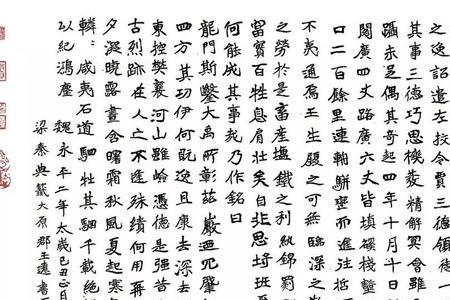 之逸詔遣左校令賈三德領徒一
其事三德巧思機發精解冥會雖
躡未足偶其奇起四年十月十日
閣廣四丈路廣六丈皆填磎棧壑
口二百餘里連輈駢轡而進往哲
不夷通焉王生履之可無臨深之
之勞於是畜產鹽鐵之利紈綿罽
富實百姓息肩壯矣自非思埒班
何能成其事哉乃作銘曰
龍門斯鑿大禹所彰茲巖迺穴肇
四方其功伊何既逸且康去深去
東控樊襄河山雖嶮憑德是強昔
古烈迹在人亡不逢殊績何用再
夕凝曉露晝含曙霜秋風夏起寒
轔咸夷石道駟牡其駰千載絕
以紀鴻塵
魏永平二年太歲己丑正月
梁秦典籤太原郡王遠書